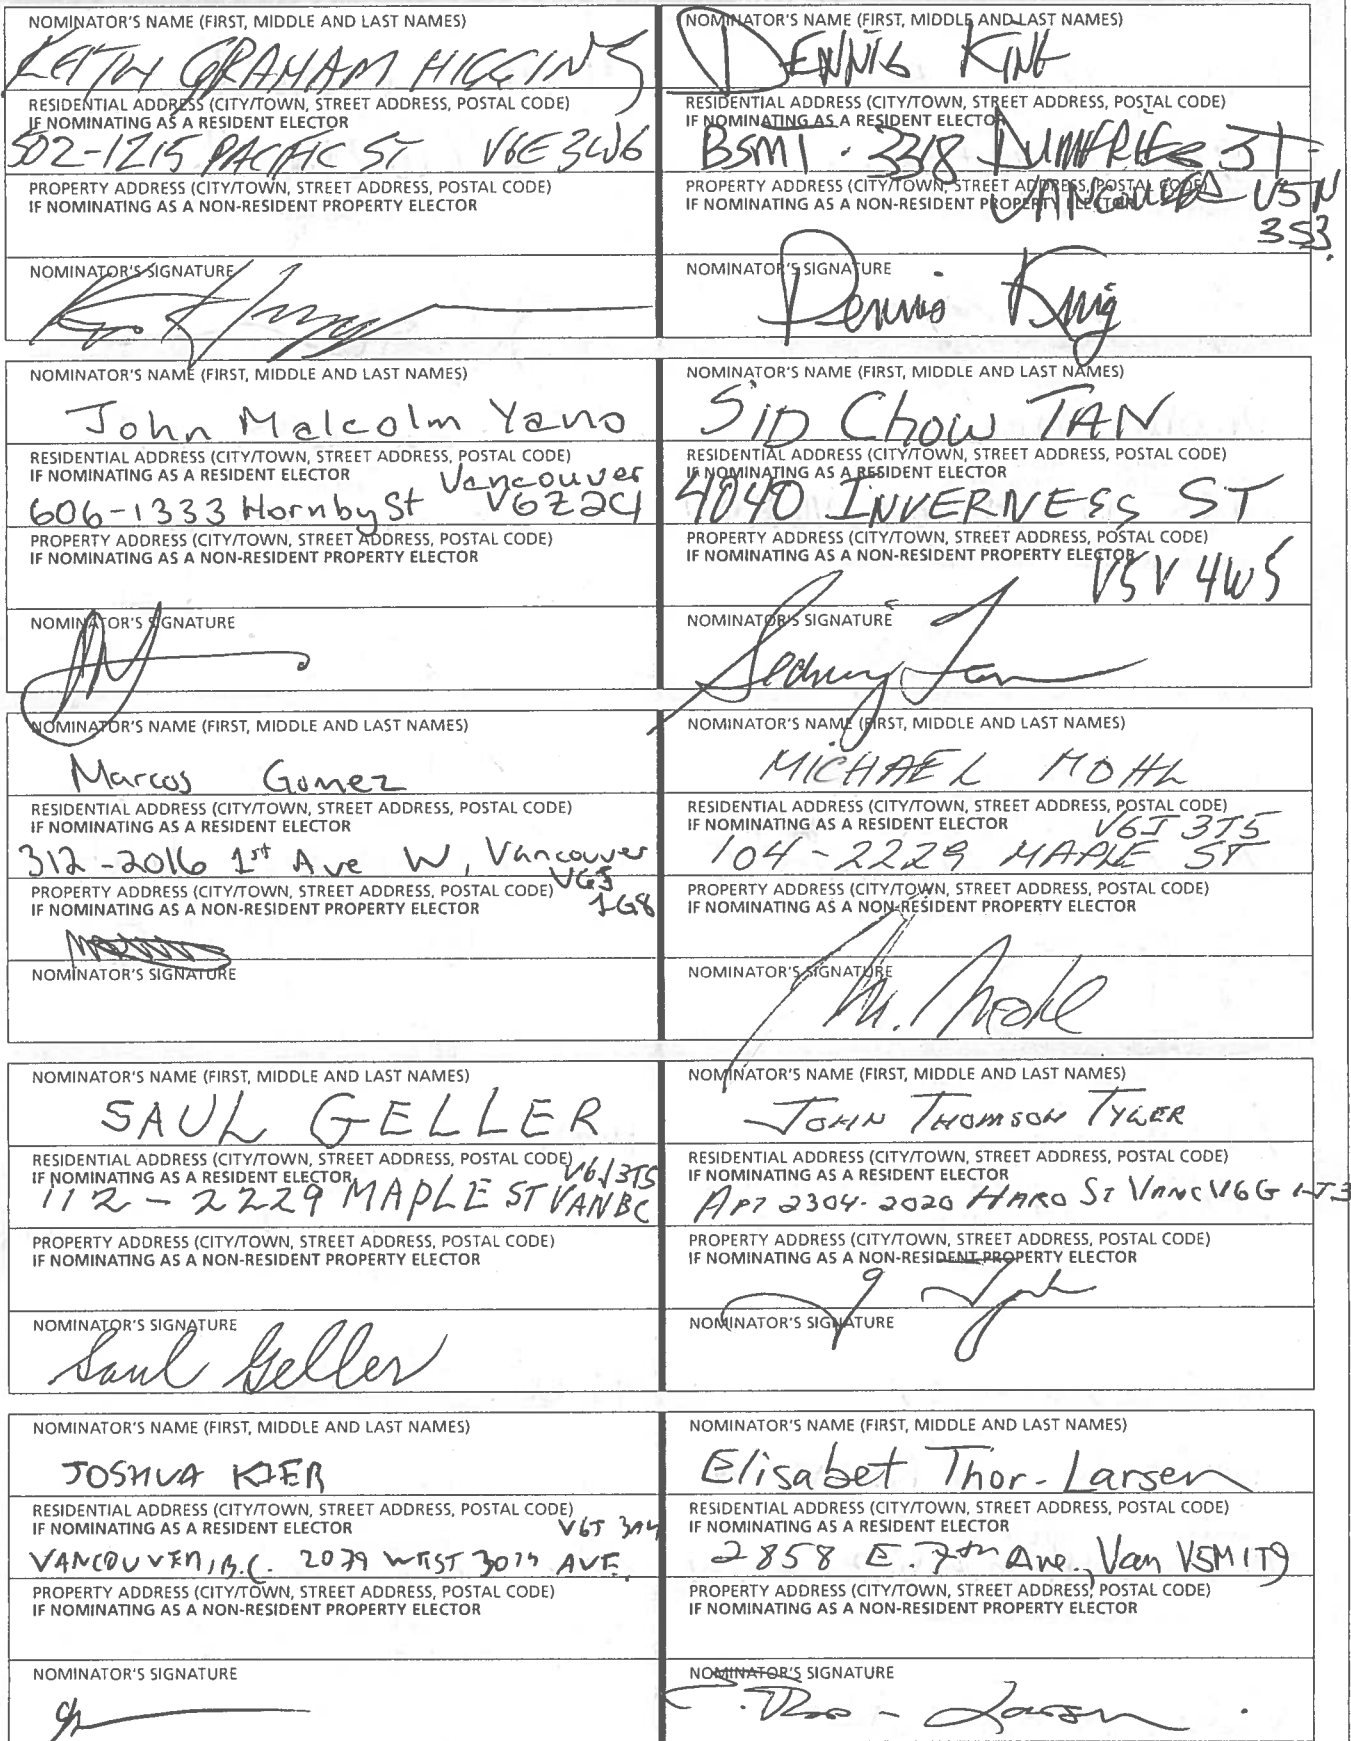 NOMINATOR'S NAME (FIRST, MIDDLE AND LAST NAMES)
KEITH GRAHAM HIGGINS
RESIDENTIAL ADDRESS (CITY/TOWN, STREET ADDRESS, POSTAL CODE)
IF NOMINATING AS A RESIDENT ELECTOR
502-1215 PACIFIC ST V6E 3W6
PROPERTY ADDRESS (CITY/TOWN, STREET ADDRESS, POSTAL CODE)
IF NOMINATING AS A NON-RESIDENT PROPERTY ELECTOR
NOMINATOR'S SIGNATURE
NOMINATOR'S NAME (FIRST, MIDDLE AND LAST NAMES)
DENNIS KING
RESIDENTIAL ADDRESS (CITY/TOWN, STREET ADDRESS, POSTAL CODE)
IF NOMINATING AS A RESIDENT ELECTOR
BSMT. 3318 DUMFRIES ST
PROPERTY ADDRESS (CITY/TOWN, STREET ADDRESS, POSTAL CODE)
IF NOMINATING AS A NON-RESIDENT PROPERTY ELECTOR
VANCOUVER V5N
3S3.
NOMINATOR'S SIGNATURE
Dennis King
NOMINATOR'S NAME (FIRST, MIDDLE AND LAST NAMES)
John Malcolm Yano
RESIDENTIAL ADDRESS (CITY/TOWN, STREET ADDRESS, POSTAL CODE)
IF NOMINATING AS A RESIDENT ELECTOR
Vancouver
606-1333 Hornby St V6Z2C1
PROPERTY ADDRESS (CITY/TOWN, STREET ADDRESS, POSTAL CODE)
IF NOMINATING AS A NON-RESIDENT PROPERTY ELECTOR
NOMINATOR'S SIGNATURE
NOMINATOR'S NAME (FIRST, MIDDLE AND LAST NAMES)
SID Chow TAN
RESIDENTIAL ADDRESS (CITY/TOWN, STREET ADDRESS, POSTAL CODE)
IF NOMINATING AS A RESIDENT ELECTOR
4040 INVERNESS ST
PROPERTY ADDRESS (CITY/TOWN, STREET ADDRESS, POSTAL CODE)
IF NOMINATING AS A NON-RESIDENT PROPERTY ELECTOR
V5V 4W5
NOMINATOR'S SIGNATURE
NOMINATOR'S NAME (FIRST, MIDDLE AND LAST NAMES)
Marcos Gomez
RESIDENTIAL ADDRESS (CITY/TOWN, STREET ADDRESS, POSTAL CODE)
IF NOMINATING AS A RESIDENT ELECTOR
312-2016 1st Ave W, Vancouver
V6J
1G8
PROPERTY ADDRESS (CITY/TOWN, STREET ADDRESS, POSTAL CODE)
IF NOMINATING AS A NON-RESIDENT PROPERTY ELECTOR
NOMINATOR'S SIGNATURE
NOMINATOR'S NAME (FIRST, MIDDLE AND LAST NAMES)
MICHAEL MOHL
RESIDENTIAL ADDRESS (CITY/TOWN, STREET ADDRESS, POSTAL CODE)
IF NOMINATING AS A RESIDENT ELECTOR
V6J 3T5
104-2229 MAPLE ST
PROPERTY ADDRESS (CITY/TOWN, STREET ADDRESS, POSTAL CODE)
IF NOMINATING AS A NON-RESIDENT PROPERTY ELECTOR
NOMINATOR'S SIGNATURE
M. Mohl
NOMINATOR'S NAME (FIRST, MIDDLE AND LAST NAMES)
SAUL GELLER
RESIDENTIAL ADDRESS (CITY/TOWN, STREET ADDRESS, POSTAL CODE)
IF NOMINATING AS A RESIDENT ELECTOR
V6J3T5
112-2229 MAPLE ST VAN BC
PROPERTY ADDRESS (CITY/TOWN, STREET ADDRESS, POSTAL CODE)
IF NOMINATING AS A NON-RESIDENT PROPERTY ELECTOR
NOMINATOR'S SIGNATURE
Saul Geller
NOMINATOR'S NAME (FIRST, MIDDLE AND LAST NAMES)
JOHN THOMSON TYLER
RESIDENTIAL ADDRESS (CITY/TOWN, STREET ADDRESS, POSTAL CODE)
IF NOMINATING AS A RESIDENT ELECTOR
APT 2304-2020 HARO ST VANC V6G 1J3
PROPERTY ADDRESS (CITY/TOWN, STREET ADDRESS, POSTAL CODE)
IF NOMINATING AS A NON-RESIDENT PROPERTY ELECTOR
NOMINATOR'S SIGNATURE
NOMINATOR'S NAME (FIRST, MIDDLE AND LAST NAMES)
JOSHUA KIER
RESIDENTIAL ADDRESS (CITY/TOWN, STREET ADDRESS, POSTAL CODE)
IF NOMINATING AS A RESIDENT ELECTOR
V6J
VANCOUVER, B.C. 2079 WEST 30TH AVE.
PROPERTY ADDRESS (CITY/TOWN, STREET ADDRESS, POSTAL CODE)
IF NOMINATING AS A NON-RESIDENT PROPERTY ELECTOR
NOMINATOR'S SIGNATURE
NOMINATOR'S NAME (FIRST, MIDDLE AND LAST NAMES)
Elisabet Thor-Larsen
RESIDENTIAL ADDRESS (CITY/TOWN, STREET ADDRESS, POSTAL CODE)
IF NOMINATING AS A RESIDENT ELECTOR
2858 E. 7th Ave., Van V5M1T9
PROPERTY ADDRESS (CITY/TOWN, STREET ADDRESS, POSTAL CODE)
IF NOMINATING AS A NON-RESIDENT PROPERTY ELECTOR
NOMINATOR'S SIGNATURE